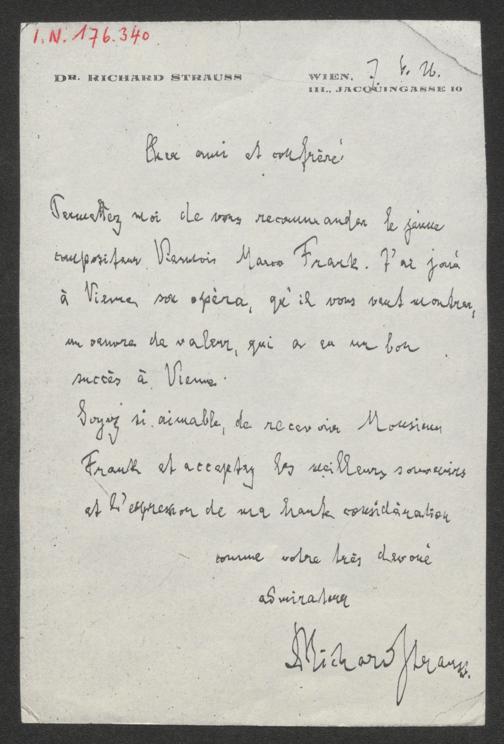 I.N. 176.340
DR. RICHARD STRAUSS
WIEN, 7. 6. 26.
III., JACQUINGASSE 10
Cher ami et confrère!
Permettez moi de vous recommander le jeune
compositeur Viennois Marco Frank. J'ai joué
à Vienne son opéra, qu'il vous veut montrer,
un oeuvre de valeur, qui a eu un bon
succès à Vienne.
Soyez si aimable, de recevoir Monsieur
Frank et acceptez les meilleurs souvenirs
et l'expression de ma haute considération
comme votre très devoué
admirateur
Richard Strauss.